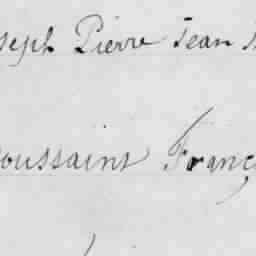 seph Pierre Jean
oussaint Franç